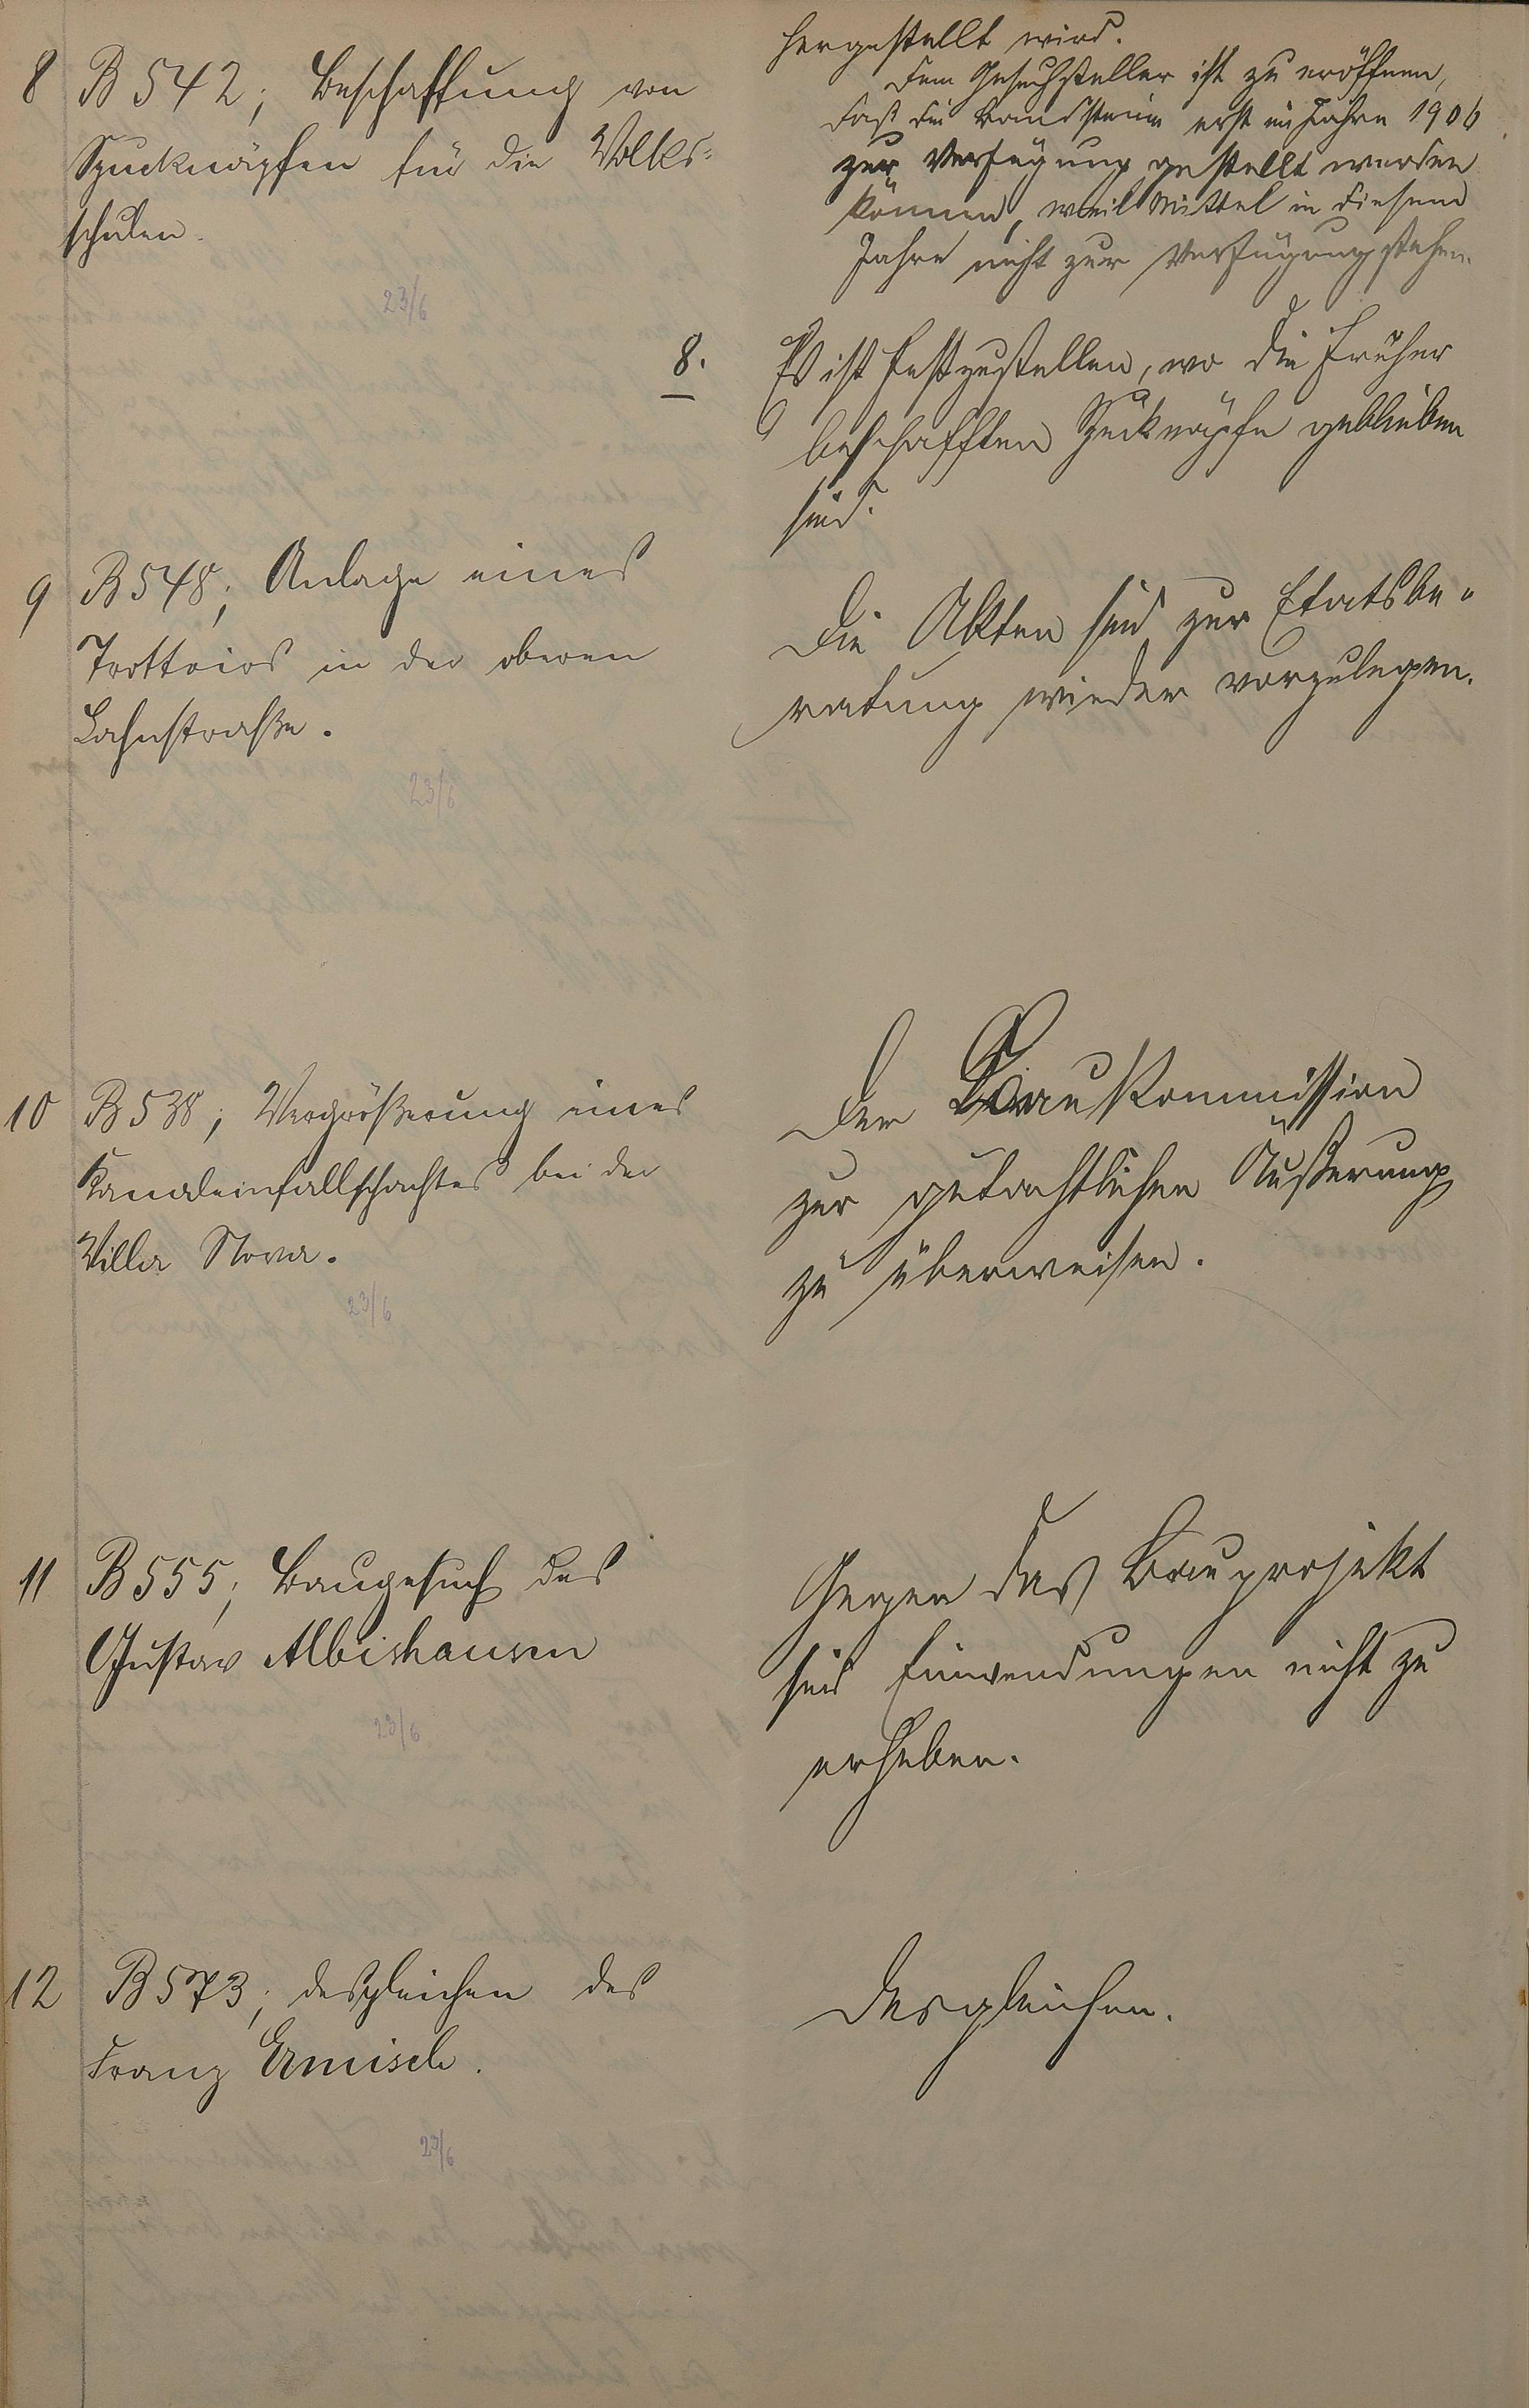 hergestellt wird.
Dem Gesuchsteller ist zu eröffnen,
daß die Randsteine erst im Jahre 1906
zur Verfügung gestellt werden
können, weil Mittel in diesem
Jahre nicht zur Verfügung stehen.
8 B 542; Beschaffung von
Spucknäpfen für die Volks-
schulen.
23/6
8. Es ist festzustellen, wo die früher
beschafften Spucknäpfe geblieben
sind.
9 B 548; Anlage eines
Trottoirs in der oberen
Lahnstraße.
23/6
Die Akten sind zur Etatsbe-
ratung wieder vorzulegen.
10 B 538; Vergrößerung eines
Kanaleinfallschachtes bei der
Villa Nova.
23/6
Der Baukommission
zur gutachtlichen Äußerung
zu überweisen.
11 B 555; Baugesuch des
Gustav Albishausen
23/6
Gegen das Bauprojekt
sind Einwendungen nicht zu
erheben.
12 B 573; desgleichen des
Franz Ermisch.
23/6
Desgleichen.